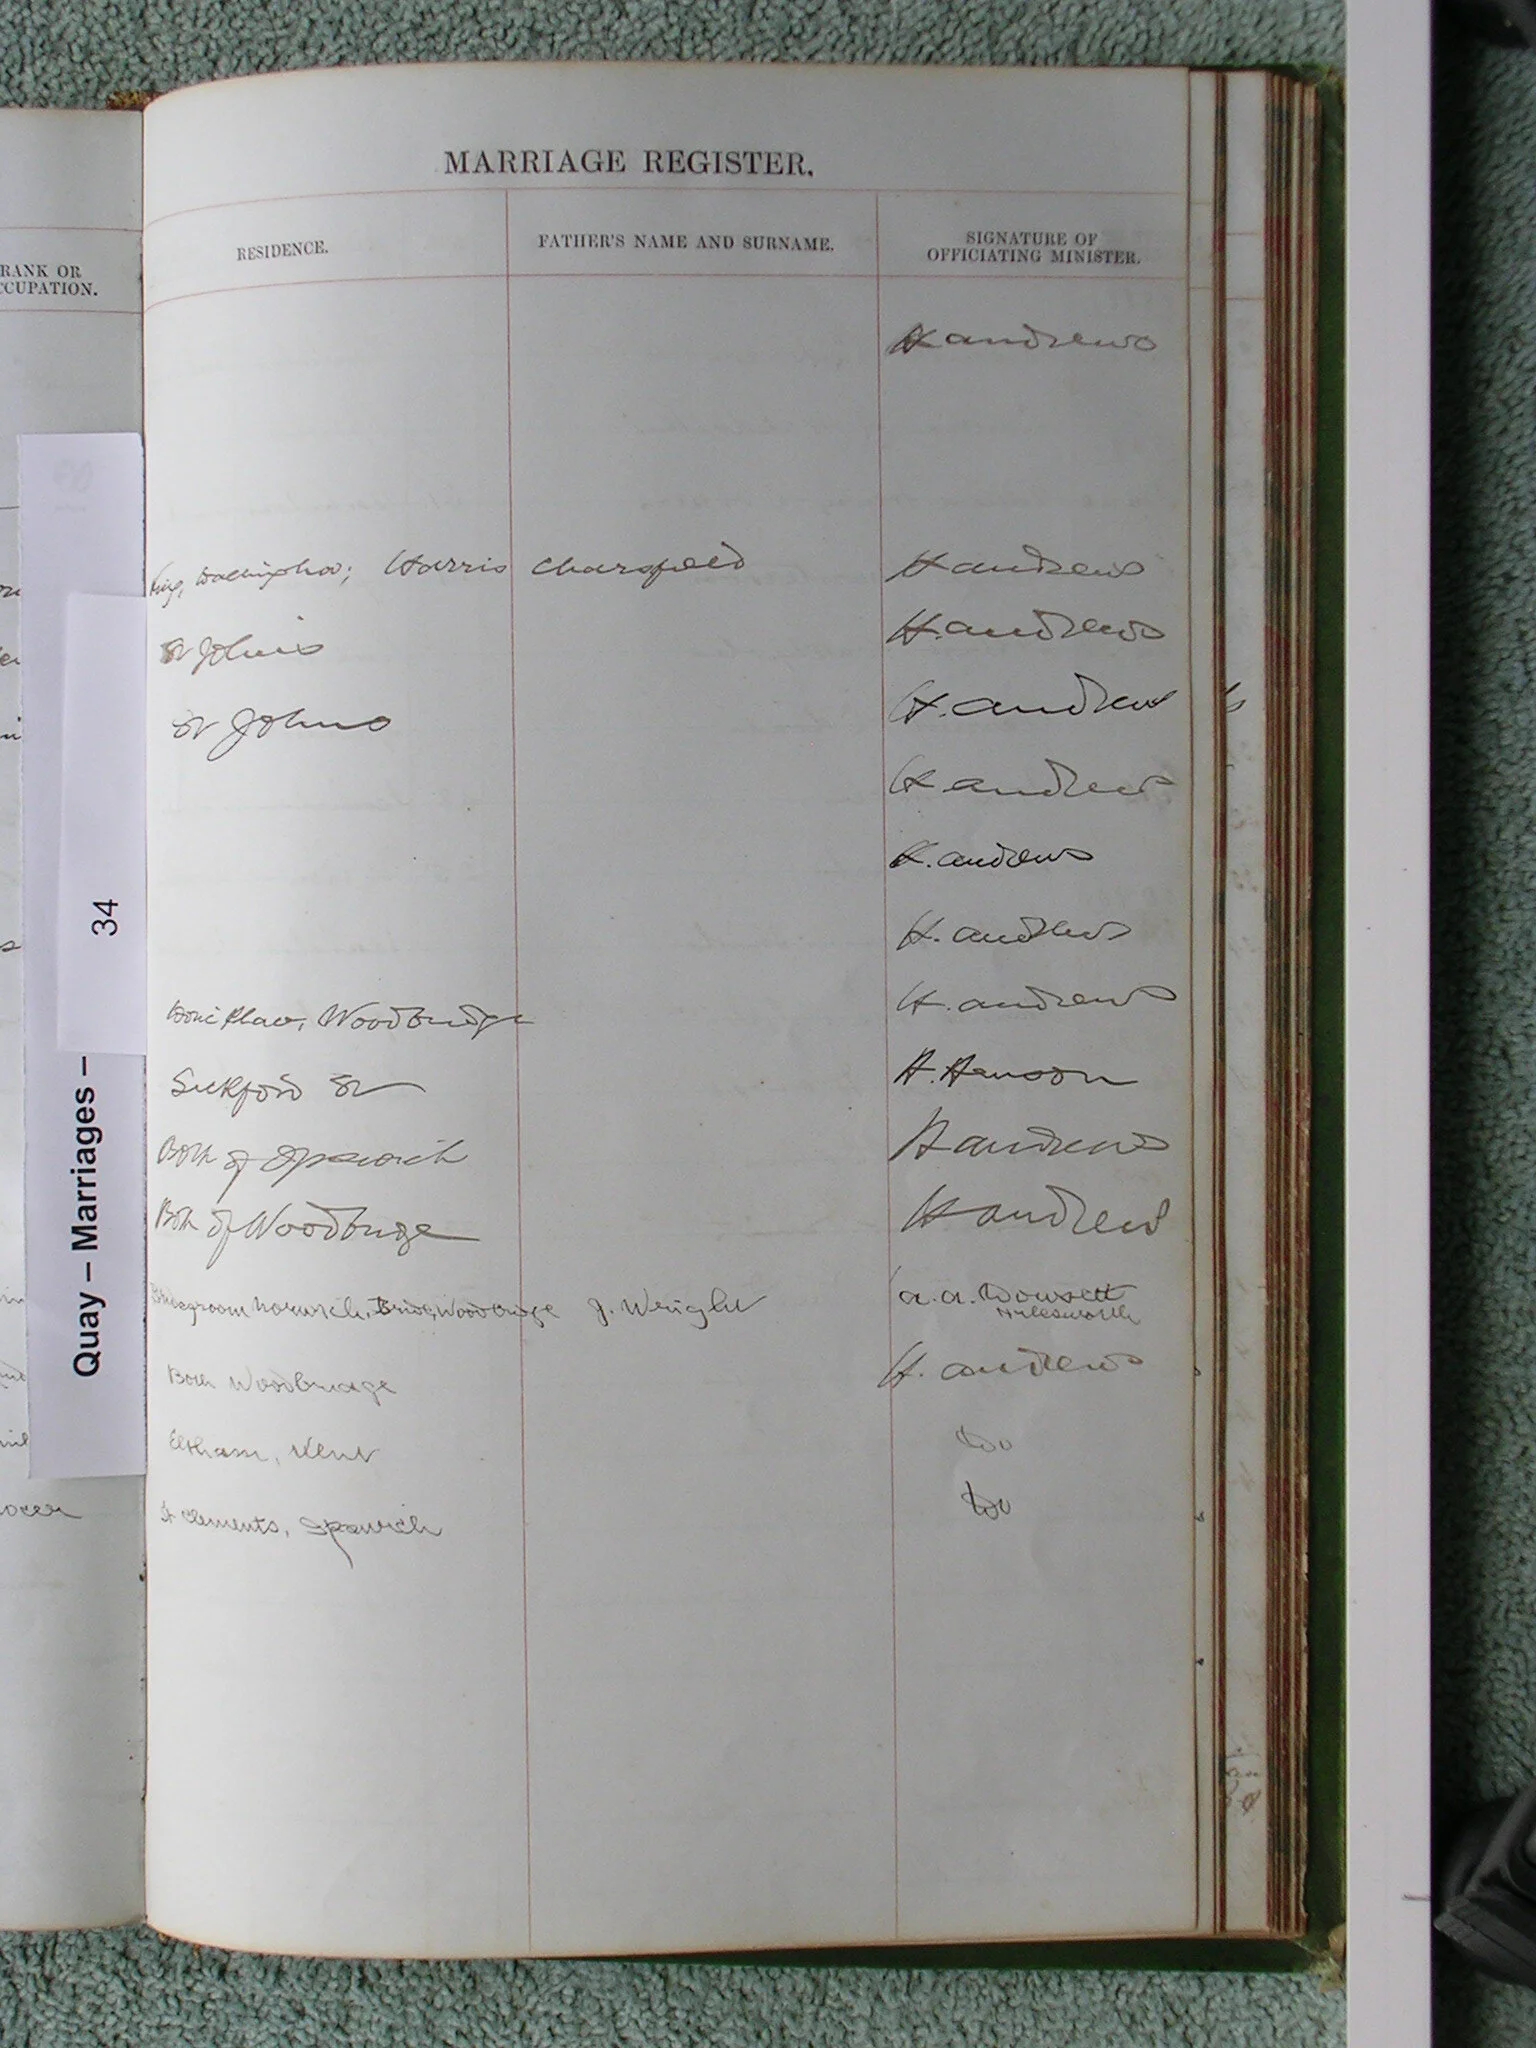 MARRIAGE REGISTER.
RANK OR
OCCUPATION.
RESIDENCE.
FATHER'S NAME AND SURNAME.
SIGNATURE OF
OFFICIATING MINISTER.
H Andrews
Harris Charsfield H Andrews
St Johns H. Andrews
St Johns H. Andrews
H. Andrews
H. Andrews
H. Andrews
Place, Woodbridge H. Andrews
Seckford St H. Henson
Both of Ipswich H Andrews
Both of Woodbridge H Andrews
Bridegroom Norwich, Bride, Woodbridge J. Wright A. A. Dowsett
Halesworth
Both Woodbridge H. Andrews
Eltham, Kent Do
St Clements, Ipswich Do
Quay – Marriages – 34